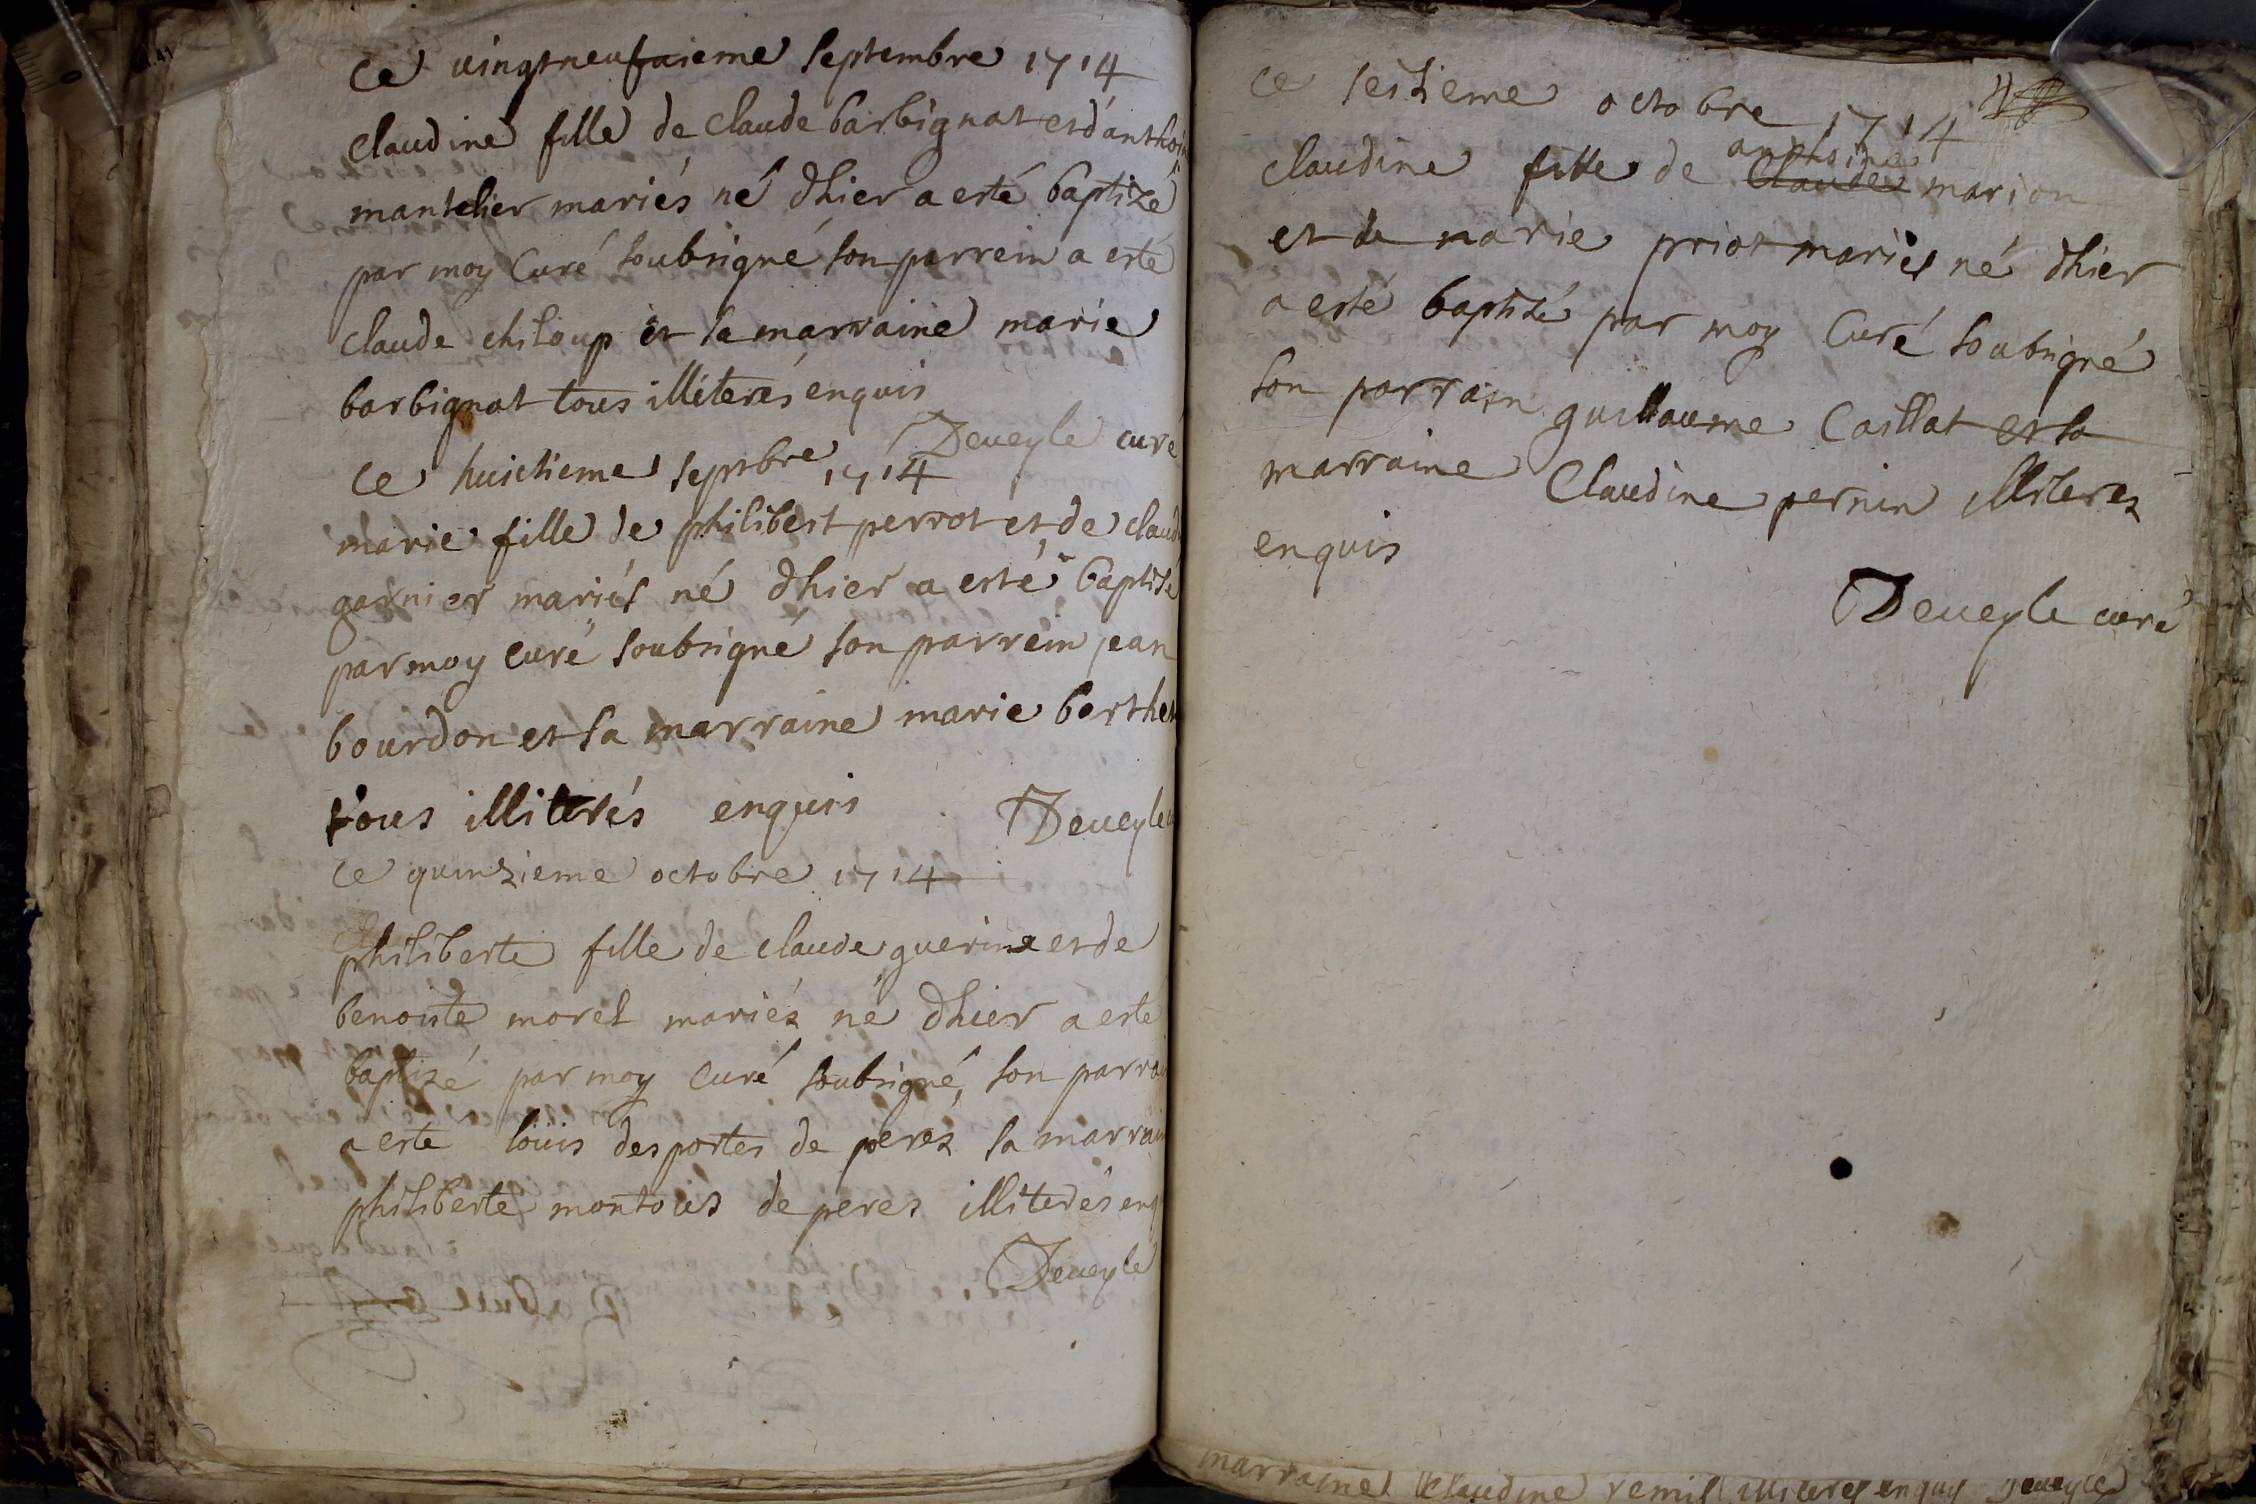 ce vingtneufuieme septembre 1714
claudine fille de claude barbignat et d'anthoi
mantelier mariés né dhier a esté baptizé
par moy Curé soubsigné son parrein a esté
claude chiloup et la marraine marie
barbignat tous illiterés enquis
Deueyle curé
Ce huictieme septbre 1714
marie fille de philibert perrot et de claud
garnier mariés né dhier a esté baptisé
par moy curé soubsigné son parrein jean
bourdon et sa marraine marie berthe
tous illiterés enquis Deueyle
Ce quinzieme octobre 1714
philiberte fille de claude guerin et de
benoiste morel mariéz né dhier a esté
baptizé par moy curé soubsigné, son parrai
a esté loüis desportes de perez sa marrain
philiberte montoies de peres illiterés enq
Deueyle
ce seizieme octobre 1714
anthoine
claudine fille de Claude marion
et de marie priot mariés né dhier
a esté baptizé par moy Curé soubsigné
son parrain guillaume Caillat et sa
marraine Claudine pernin illiterez
enquis
Deueyle curé
marraine Claudine remis illiteres enquis Deueyle